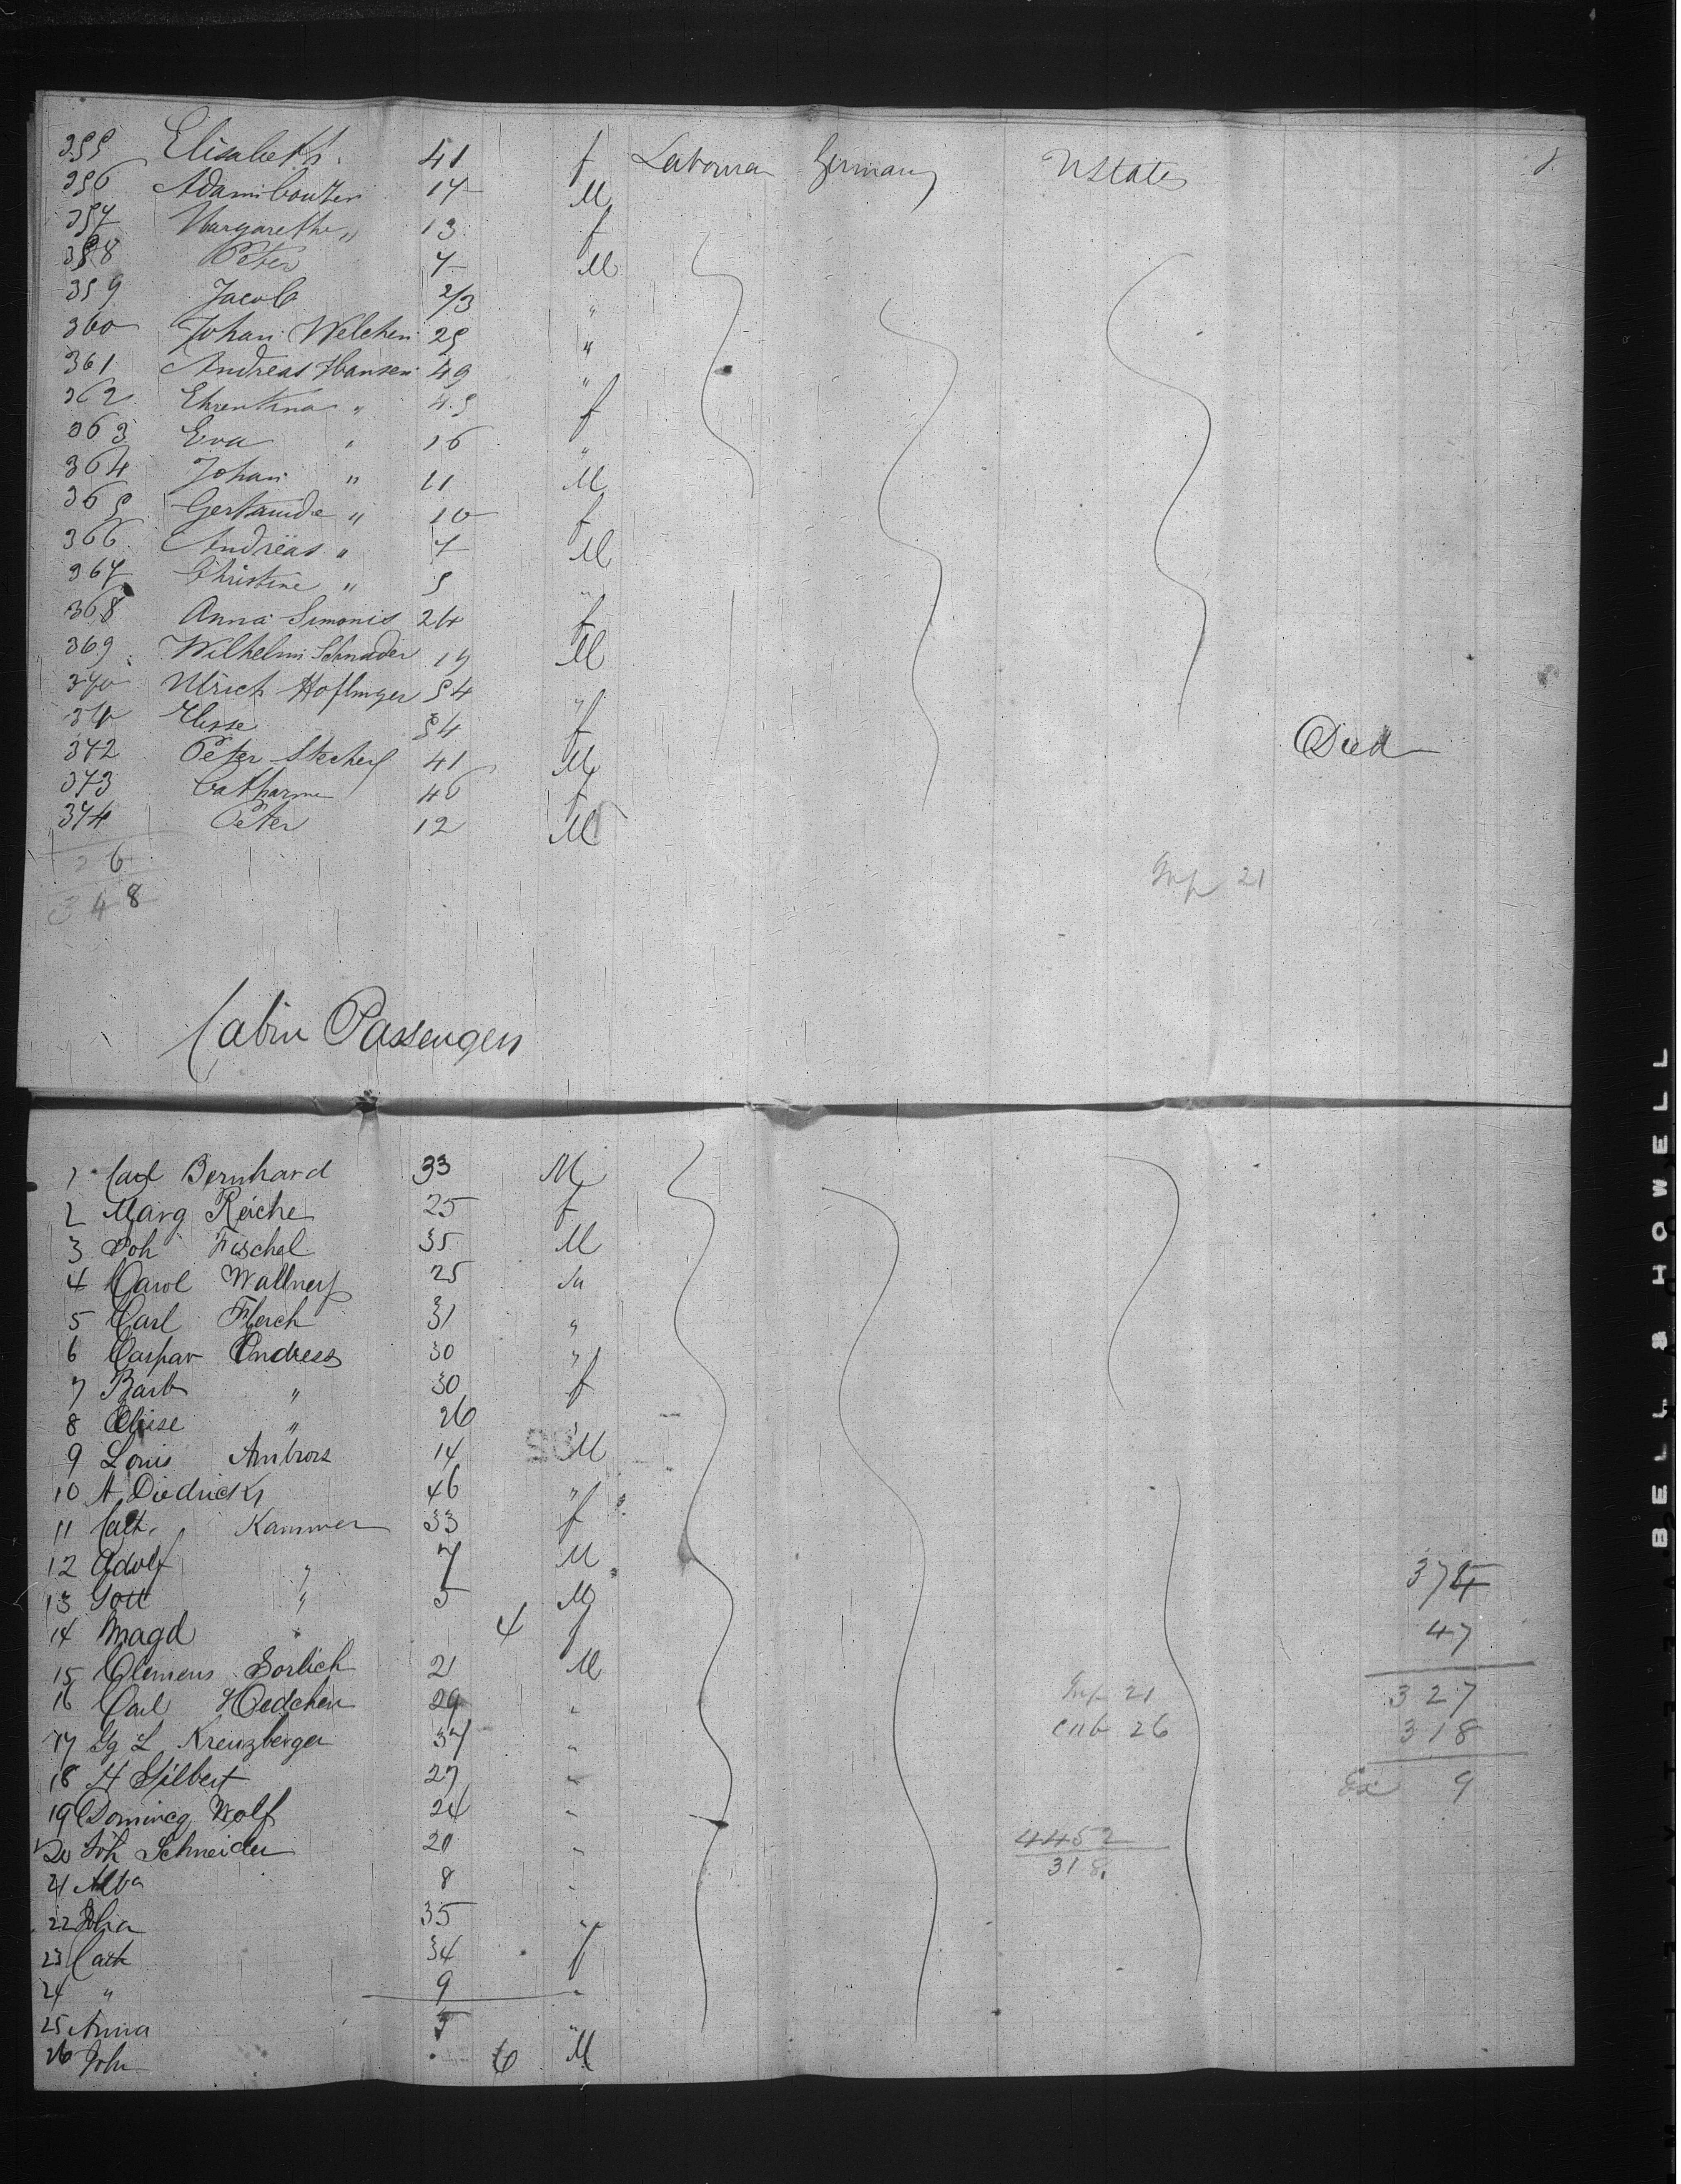 355 Elisabeth. 41 f Laborna Germany UStates
356 Adam Couter 14 M
357 Margarethe " 13 f
358 Peter 7 M
359 Jacob 2/3 "
360 Johan Welchen 25 "
361 Andreas Hansen 49 "
362 Ehrentina " 45 f
363 Eva " 16 "
364 Johan " 11 M
365 Gertruida " 10 f
366 Andreas " 7 M
367 Christine " 5 "
368 Anna Simonis 24 f
369 Wilhelm Schnader 19 M
370 Ulrich Hoflinger 54 "
371 54 f Died
372 Peter Stecherf 41 M
373 Catharine 46 f
374 Peter 12 M
26
348
Inf 21
Cabin Passengers
1 Carl Bernhard 33 M
2 Marg Reiche 25 f
3 Joh Fischel 35 M
4 Carol Wallnerf 25
5 Carl Florch 31 "
6 Caspar Endress 30 "
7 Barb " 30 f
8 Elise " 26 "
9 Louis Ambros 14 M
10 A Diedricks 46 "
11 Cath. Kammer 33 f
12 Adolf " 7 M
13 Gott " 5 M
14 Magd " 4 f
15 Clemens Gorlich 21 M
16 Carl Hoedchen 29 "
17 Gg L Kreuzberger 37 "
18 H Gilbert 27 "
19 Domineg Wolf 24 "
20 Joh Schneider 20 "
21 Alba 8 "
22 35 "
23 Cath 34 f
24 " 9 "
25 Anna 5 "
26 John 6 M
374
47
327
318
Ex 9
Inf 21
cab 26
4452
318
BELL & HOWELL